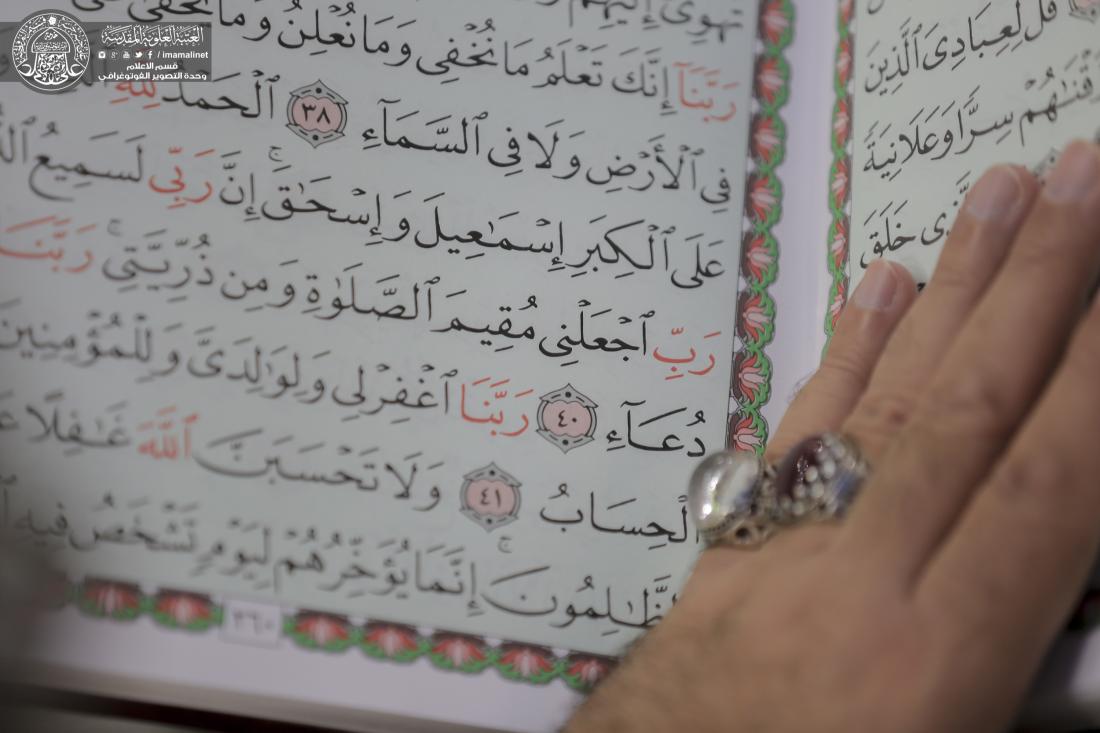 العتبة العلوية المقدسة
/ imamalinet
قسم الاعلام
وحدة التصوير الفوتوغرافي
تَهْوِىٓ إِلَيْهِمْ
رَبَّنَآ إِنَّكَ تَعْلَمُ مَا نُخْفِى وَمَا نُعْلِنُ وَمَا يَخْفَىٰ
فِى ٱلْأَرْضِ وَلَا فِى ٱلسَّمَآءِ ٣٨ ٱلْحَمْدُ لِلَّهِ
عَلَى ٱلْكِبَرِ إِسْمَٰعِيلَ وَإِسْحَٰقَ ۚ إِنَّ رَبِّى لَسَمِيعُ
رَبِّ ٱجْعَلْنِى مُقِيمَ ٱلصَّلَوٰةِ وَمِن ذُرِّيَّتِى ۚ رَبَّنَا
دُعَآءِ ٤٠ رَبَّنَا ٱغْفِرْ لِى وَلِوَٰلِدَىَّ وَلِلْمُؤْمِنِينَ
ٱلْحِسَابُ ٤١ وَلَا تَحْسَبَنَّ ٱللَّهَ غَٰفِلًا
ٱلظَّٰلِمُونَ ۚ إِنَّمَا يُؤَخِّرُهُمْ لِيَوْمٍ تَشْخَصُ فِيهِ
٢٦٠
قُل لِّعِبَادِىَ ٱلَّذِينَ
سِرًّا وَعَلَانِيَةً
خَلَقَ